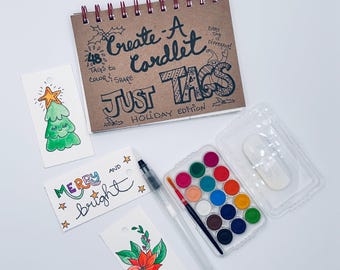 Create-A
Cardlet
48
TAGS to
COLOR & SHARE
JUST TAGS
HOLIDAY EDITION
MERRY AND
bright